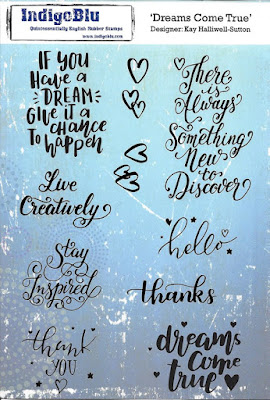 IndigoBlu
Quintessentially English Rubber Stamps
www.indigoblu.com
'Dreams Come True'
Designer: Kay Halliwell-Sutton
IF YOU
Have a
DREAM
Give it a
CHANCE
To
happen
There
is
Always
Something
New
to
Discover
Live
Creatively
Stay
Inspired
hello
thanks
thank
you
dreams
come
true